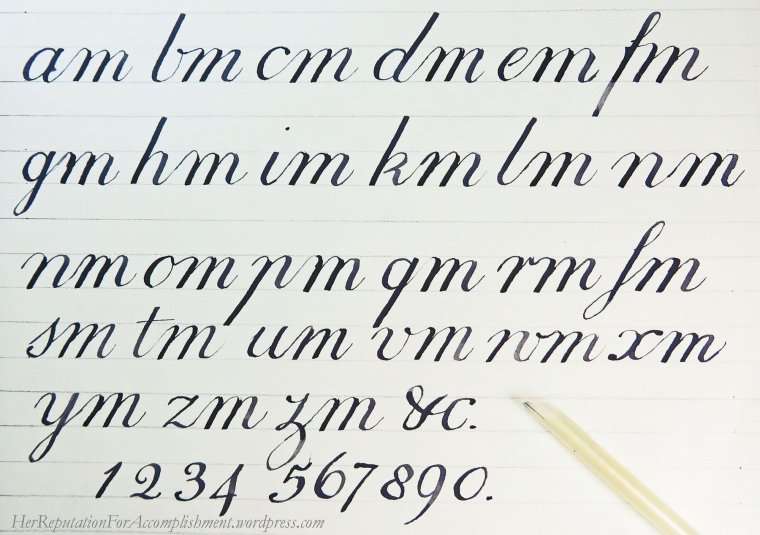 am bm cm dm em fm
gm hm im km lm nm
nm om pm qm rm ſm
sm tm um vm wm xm
ym zm ʒm &c.
1234 567890.
HerReputationForAccomplishment.wordpress.com